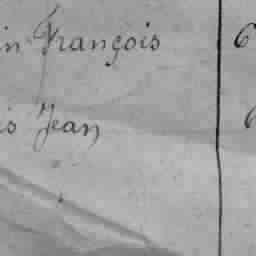 in François 6
is Jean 6